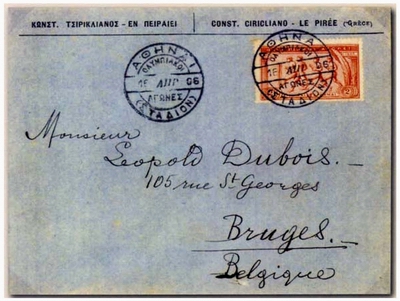 ΚΩΝΣΤ. ΤΣΙΡΙΚΛΙΑΝΟΣ - ΕΝ ΠΕΙΡΑΙΕΙ
CONST. CIRICLIANO - LE PIRÉE (GRÈCE)
ΑΘΗΝΑΙ
ΟΛΥΜΠΙΑΚΟΙ
15 ΑΠΡ 06
ΑΓΩΝΕΣ
(ΣΤΑΔΙΟΝ)
ΑΘΗΝΑΙ
15 ΑΠΡ 06
ΑΓΩΝΕΣ
(ΣΤΑΔΙΟΝ)
Monsieur
Leopold Dubois. —
105 rue St Georges
Bruges.
Belgique